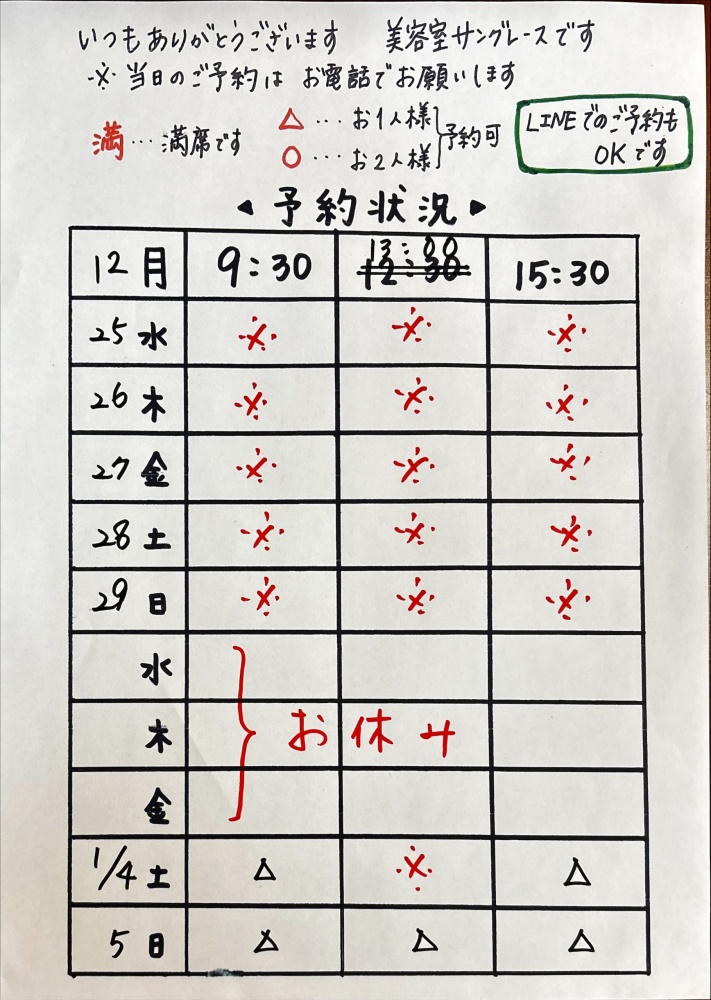 いつもありがとうございます 美容室サングレースです
※ 当日のご予約は お電話でお願いします
満…満席です
△…お1人様
○…お2人様
予約可
LINEでのご予約も
OKです
◀ 予約状況 ▶
12月 9:30 13:00 12:30 15:30
25 水 ※ ※ ※
26 木 ※ ※ ※
27 金 ※ ※ ※
28 土 ※ ※ ※
29 日 ※ ※ ※
水
木 お休み
金
1/4 土 △ ※ △
5 日 △ △ △